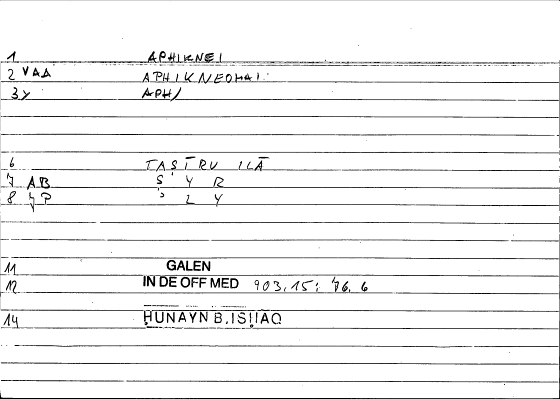 1 APHIKNEI
2 VAA APHIKNEOMAI
3 y APH/
6 TAṢĪRU ILĀ
7 AB Ṣ Y R
8 YP ʾ L Y
11 GALEN
12 IN DE OFF MED 903,15: 76.6
14 ḤUNAYN B. ISḤĀQ